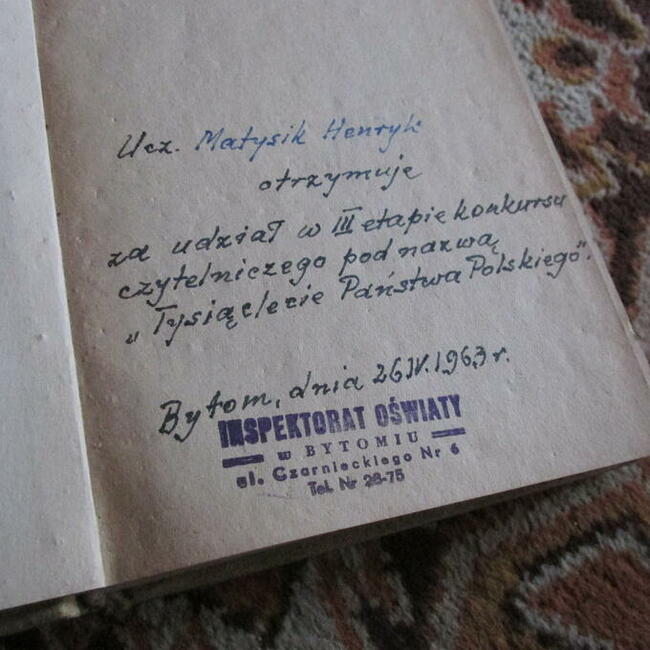 Ucz. Matysik Henryk
otrzymuje
za udział w III etapie konkursu
czytelniczego pod nazwą
„Tysiąclecie Państwa Polskiego".
Bytom, dnia 26.IV.1963 r.
INSPEKTORAT OŚWIATY
w BYTOMIU
ul. Czarnieckiego Nr 6
Tel. Nr 28-75